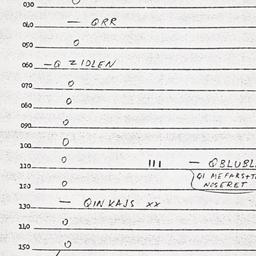 030 0
040 — QRR
050 0
060 — Q ZIDLEN
070 0
080 0
090 0
100 0
110 0 III — QBLUBL
120 0 QI MEFARS+T
NOSERET
130 — QINKAJS xx
140 0
150 0